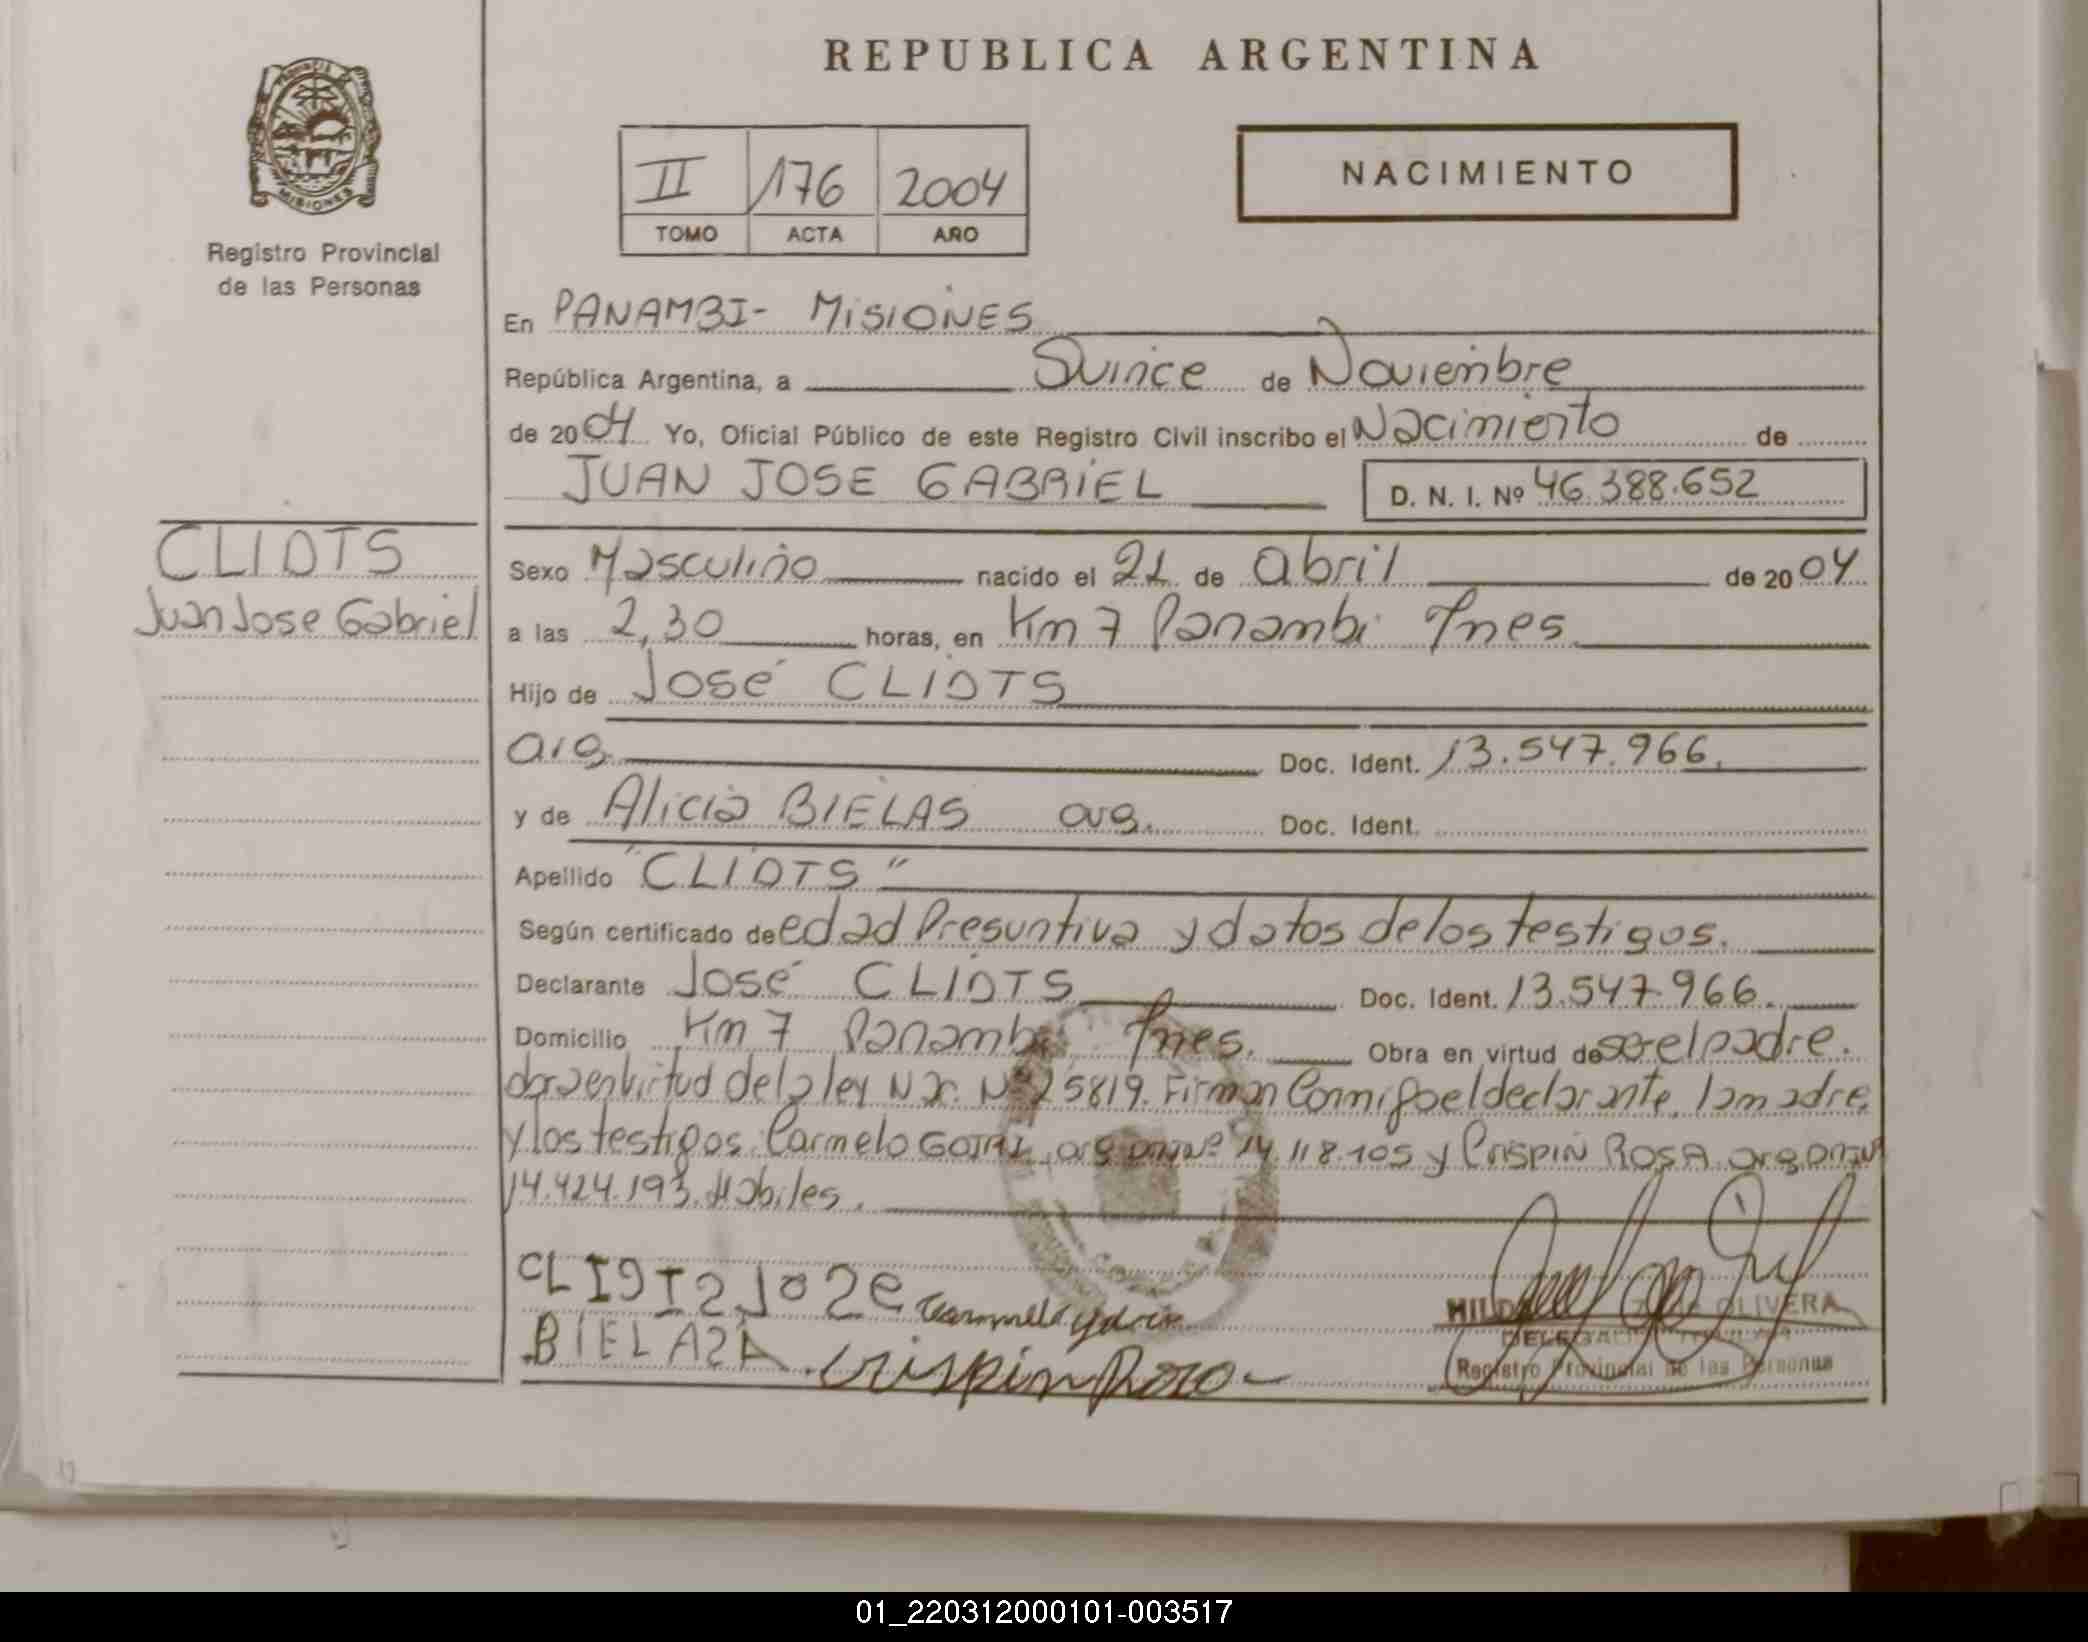 REPUBLICA ARGENTINA
MISIONES
Registro Provincial
de las Personas
II 176 2004
TOMO ACTA AÑO
NACIMIENTO
En PANAMBI- MisiONES
República Argentina, a Quince de Noviembre
de 2004 Yo, Oficial Público de este Registro Civil inscribo el Nacimiento de
JUAN JOSE GABRiEL D. N. I. Nº 46.388.652
CLIDTS
Juan Jose Gabriel
Sexo Masculino nacido el 21 de abril de 2004
a las 2,30 horas, en Km 7 Panambi Mnes.
Hijo de José CLIDTS
arg. Doc. Ident. 13.547.966.
y de Alicia BIELAS arg. Doc. Ident.
Apellido "CLIDTS"
Según certificado de edad Presuntiva y datos de los testigos.
Declarante José CLIDTS Doc. Ident. 13.547.966.
Domicilio Km 7 Panambi Mnes. Obra en virtud de ser el padre.
obra en virtud de la ley Nac. Nº 25819. Firman Conmigo el declarante, la madre,
y los testigos: Carmelo arg DNI Nº 14.118.105 y Crispin ROSA arg DNI Nº
14.424.193. Habiles.
CLIDTS JOSE
BIELASA Crispin Rosa
HILDA OLIVERA
DELEGADA TITULAR
Registro Provincial de las Personas
01_220312000101-003517